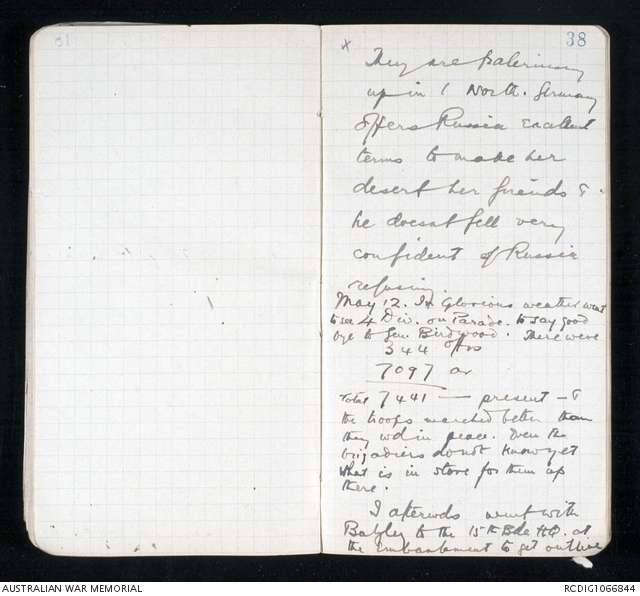 51
x 38
They are
up in / North. Germany
offers Russia excellent
terms to make her
desert her friends &
he doesnt fell very
confident of Russia
refusing.
May 12. In Glorious weather went
to see 4 Div. on Parade. to say good
bye to Gen. Birdwood. There were
344 offrs
7097 or
Total 7441 — present — &
the troops marched better than
they wd in peace. Even the
brigadiers do not know yet
what is in store for them up
there.
I afterwds went with
to the 15th Bde HQ. at
the Embankment to get outline
AUSTRALIAN WAR MEMORIAL
RCDIG1066844